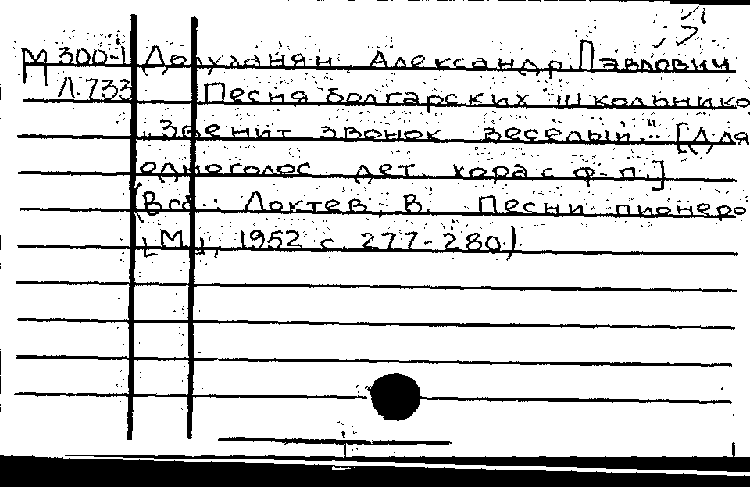 М 300-1 Долуханян, Александр Павлович
Л.733 Песня болгарских школьнико
„Звенит звонок веселый." [Для
одноголос. дет. хора с ф-п.]
(В сб.: Локтев, В. Песни пионеро
[М], 1952 с. 277-280)